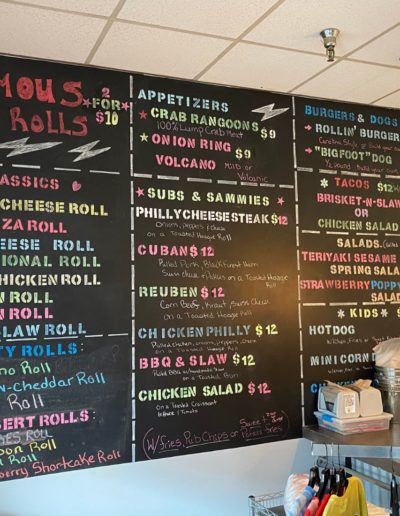 MOUS
ROLLS
2
FOR
$10
ASSICS
CHEESE ROLL
ZA ROLL
EESE ROLL
IONAL ROLL
HICKEN ROLL
N ROLL
N ROLL
SLAW ROLL
TY ROLLS:
no Roll
w-cheddar Roll
Roll
ERT ROLLS:
Roll
oon Roll
berry Shortcake Roll
APPETIZERS
CRAB RANGOONS $9
100% Lump Crab Meat
ONION RING $9
VOLCANO Mild or
Volcanic
SUBS & SAMMIES
PHILLY CHEESE STEAK $12
Onion, peppers, & cheese
on a Toasted Hoagie Roll
CUBAN $12
Pulled Pork, Black Forest Ham
Swiss cheese & Pickles on a Toasted Hoagie
Roll
REUBEN $12
Corn Beef, Kraut, Swiss Cheese
on a Toasted Hoagie Roll
CHICKEN PHILLY $12
Pulled chicken, onion, peppers, cheese
on a Toasted Hoagie Roll
BBQ & SLAW $12
Pulled BBQ w/ homemade slaw
on a Toasted Bun
CHICKEN SALAD $12
on a Toasted Croissant
lettuce / Tomato
(W/ Fries, Pub Chips or Sweet Potato Fries)
BURGERS & DOGS
ROLLIN' BURGER
Carolina Style or Build your
"BIGFOOT" DOG
TACOS $12
BRISKET-N-SLAW
OR
CHICKEN SALAD
SALADS
TERIYAKI SESAME
SPRING SALA
STRAWBERRY POPPY
SALAD
KIDS
HOT DOG
MINI CORN D